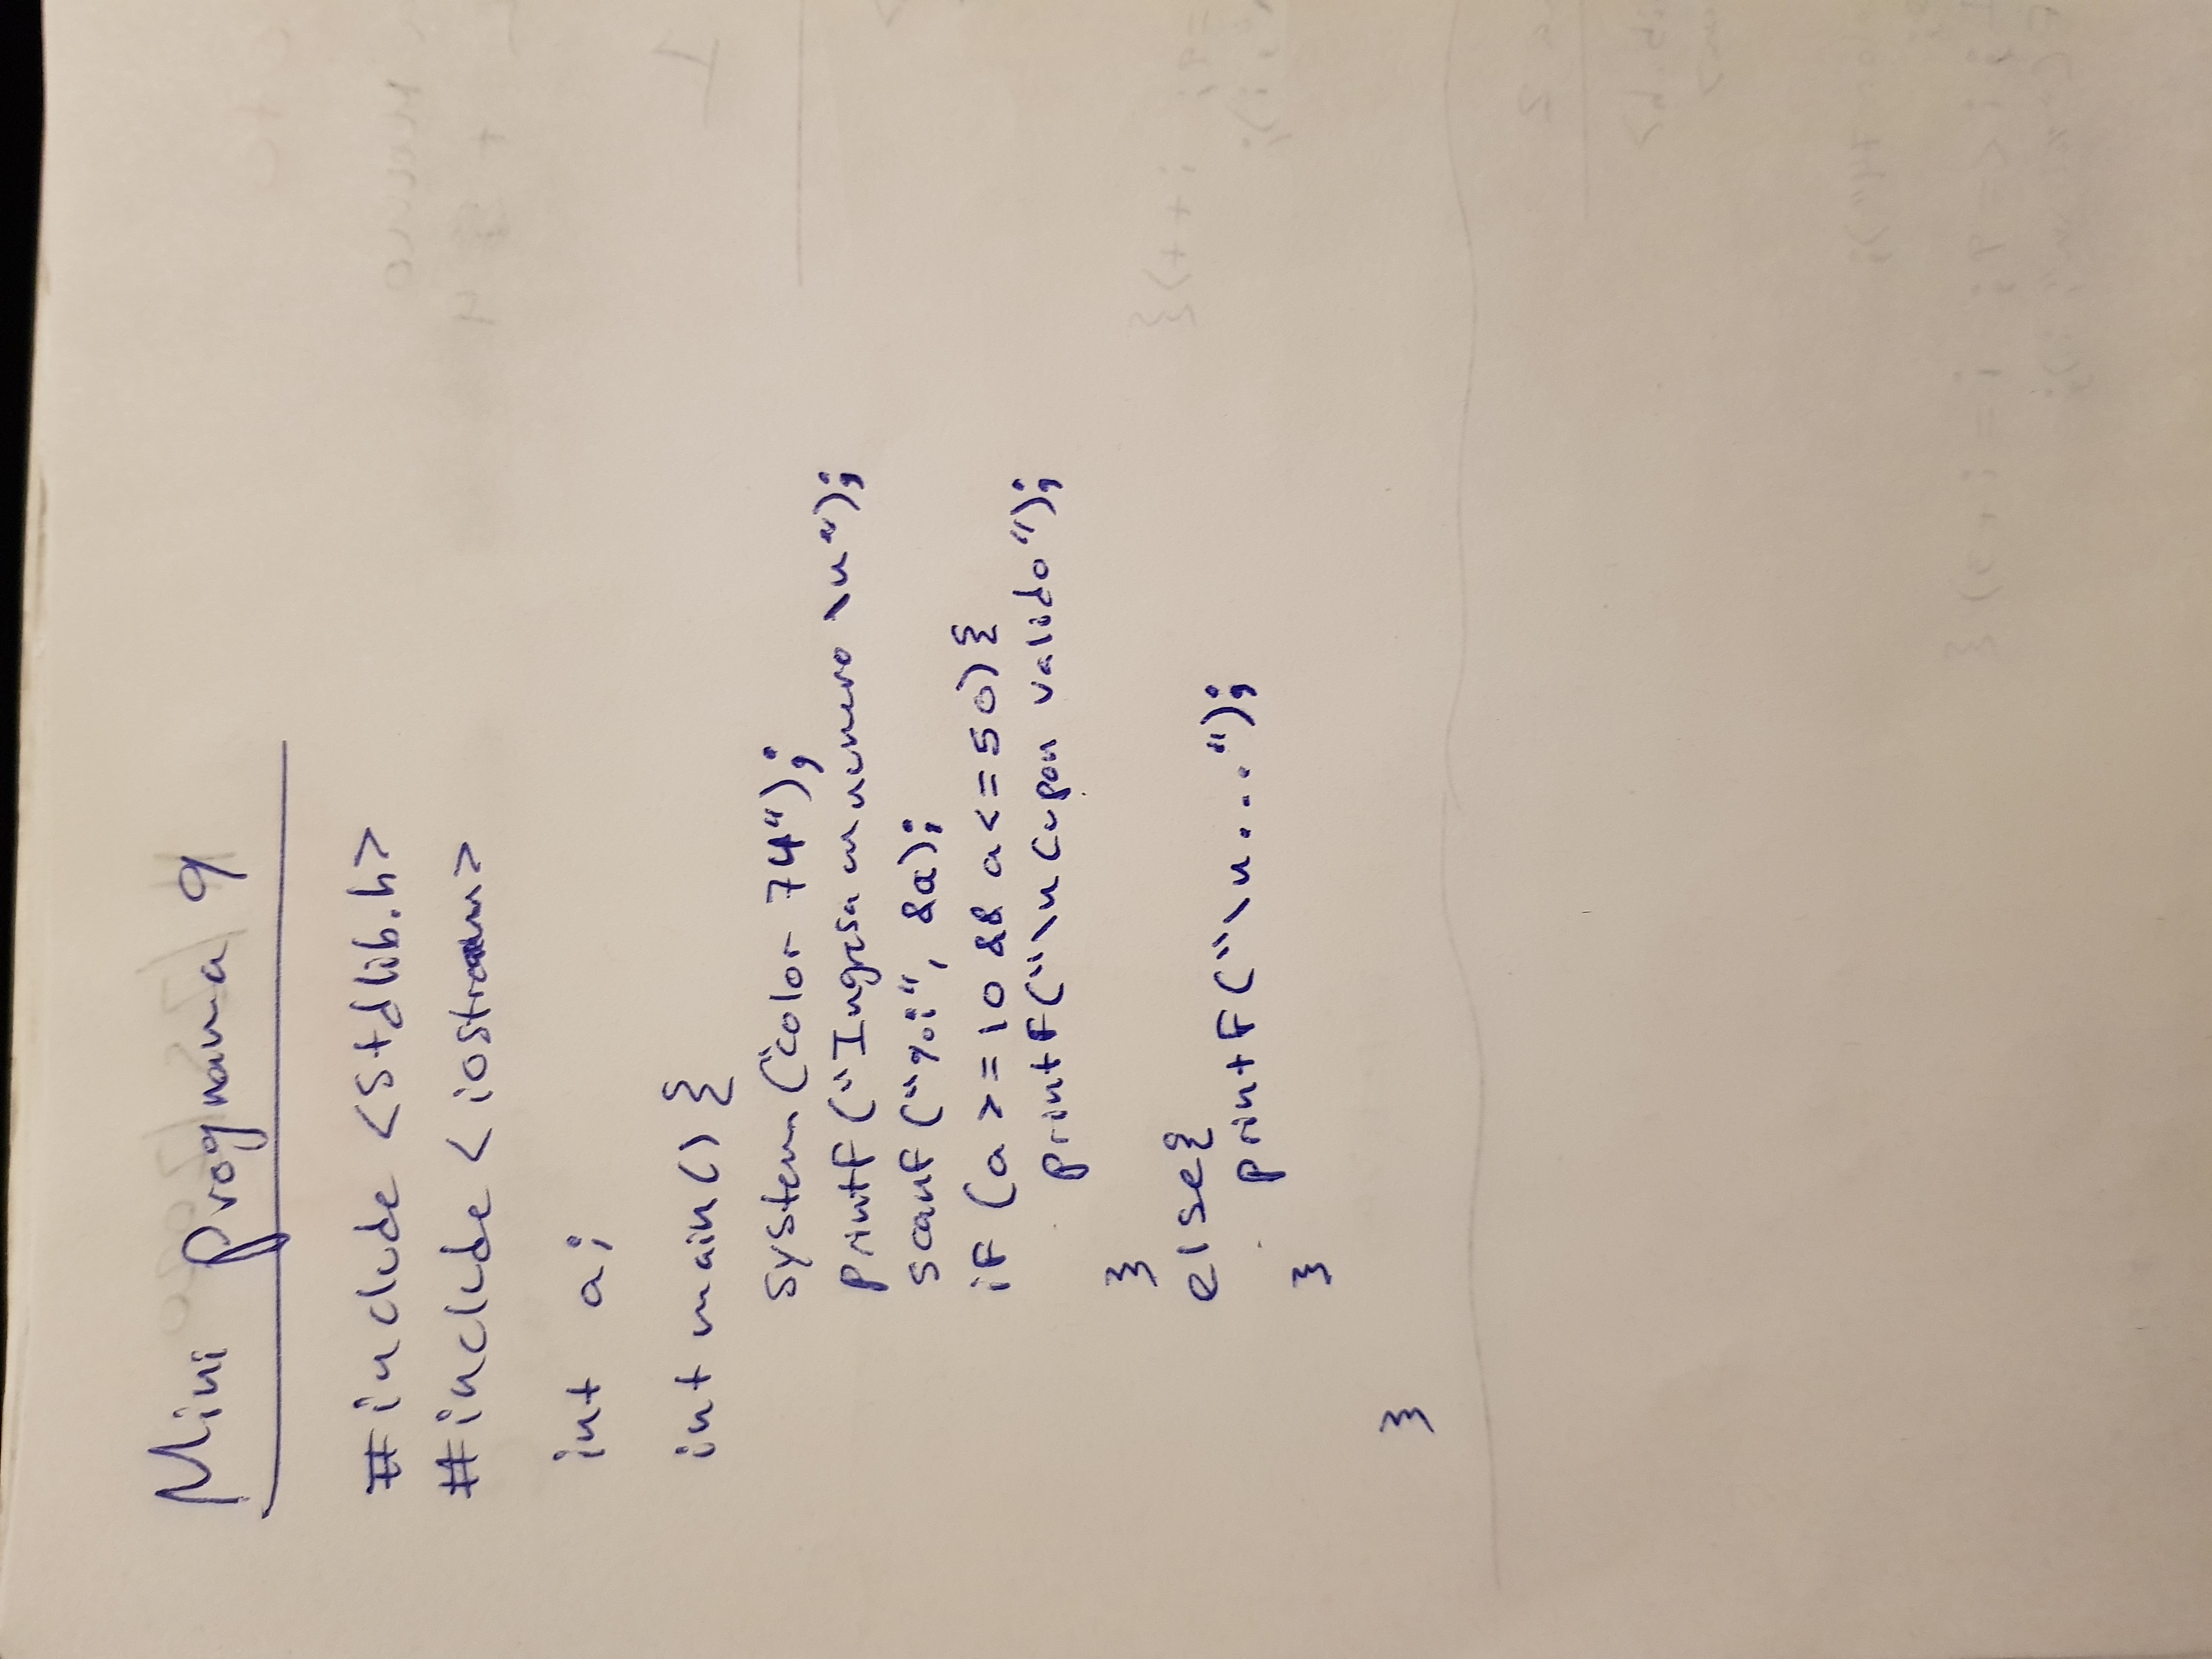 Mini programa 9
#include <stdlib.h>
#include <iostream>
int a;
int main() {
system("color 74");
printf("Ingresa un numero \n");
scanf("%i", &a);
if (a >= 10 && a <= 50) {
printf("\n Cupon valido");
}
else{
printf("\n...");
}
}